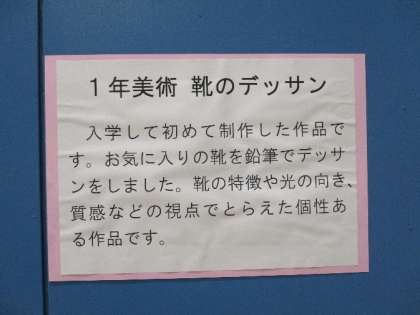 1年美術 靴のデッサン
入学して初めて制作した作品で
す。お気に入りの靴を鉛筆でデッサ
ンをしました。靴の特徴や光の向き、
質感などの視点でとらえた個性あ
る作品です。